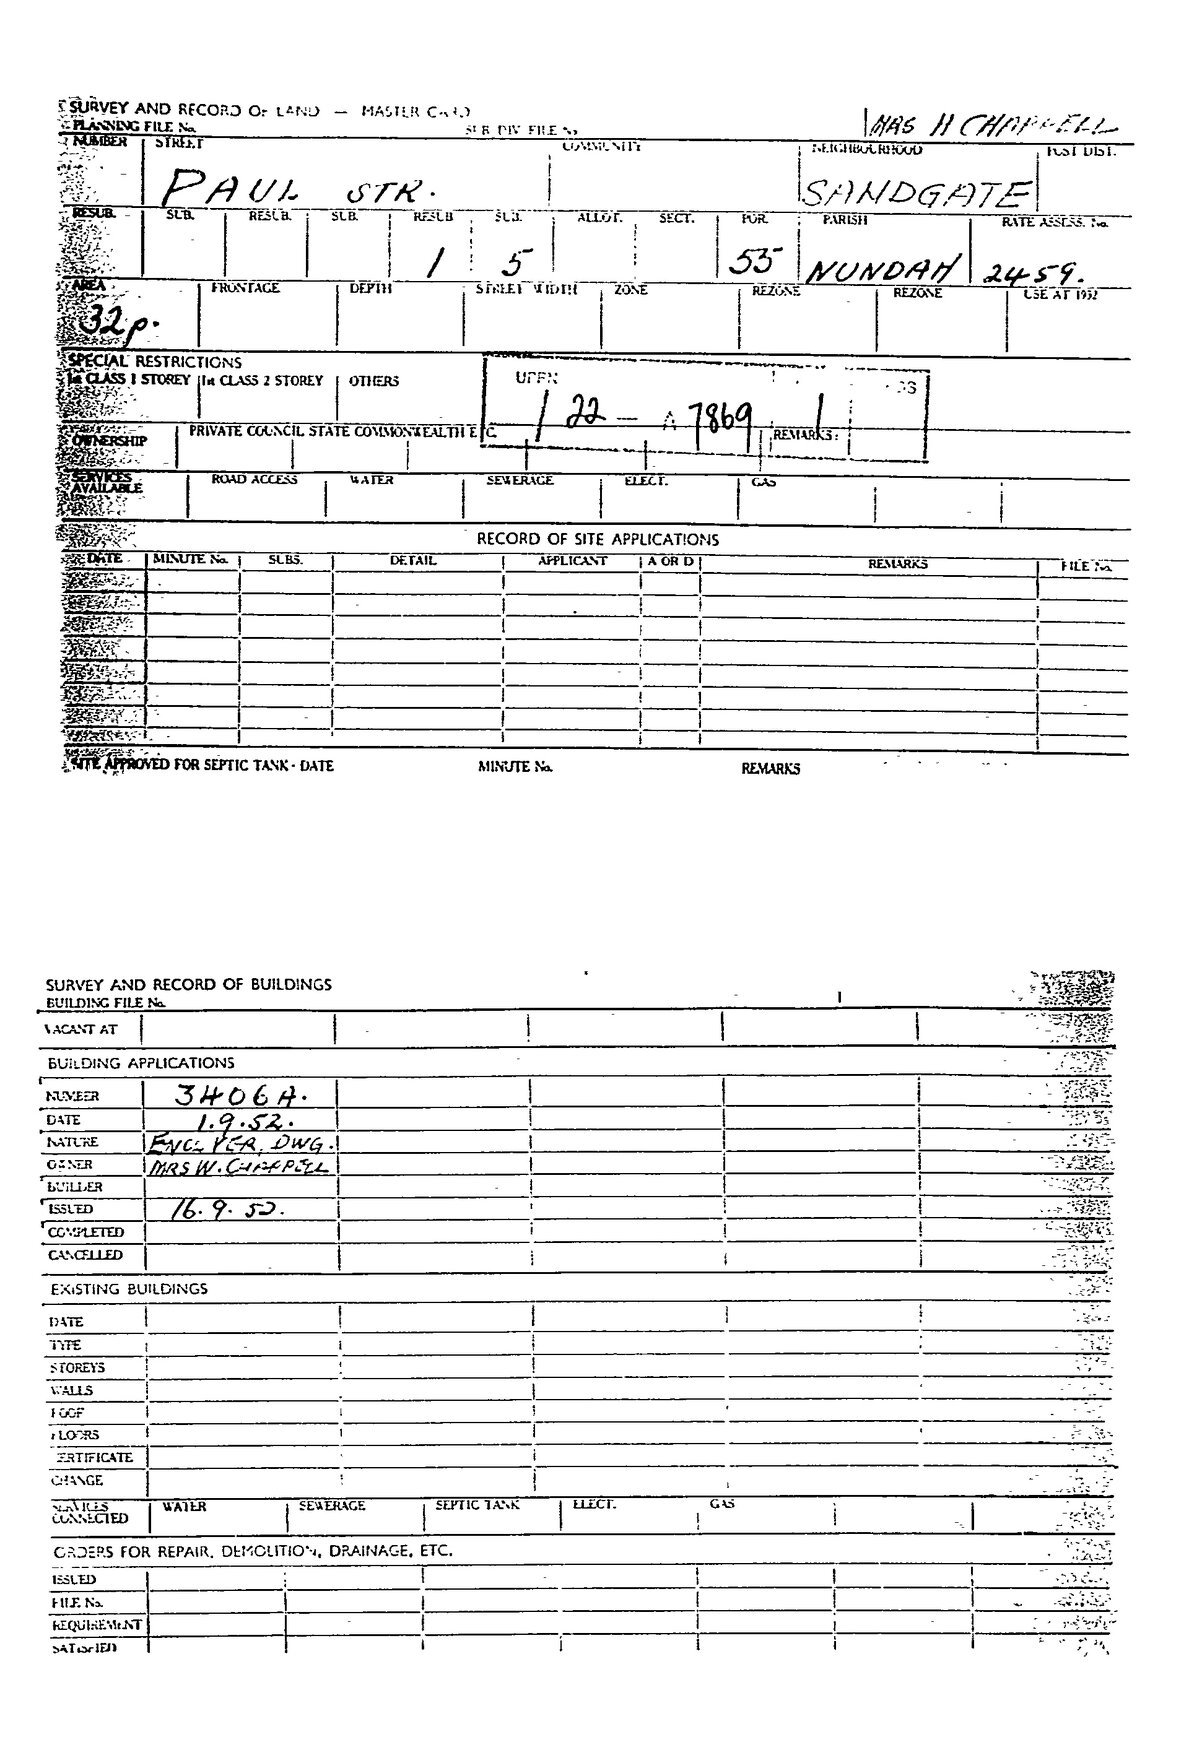 SURVEY AND RECORD OF LAND — MASTER CARD
PLANNING FILE No. SUB DIV FILE No MRS H CHAPPELL
NUMBER STREET COMMUNITY NEIGHBOURHOOD POST DIST.
PAUL STR. SANDGATE
RESUB. SUB. RESUB. SUB. RESUB SUB. ALLOT. SECT. POR. PARISH RATE ASSESS. No.
1 5 55 NUNDAH 2459.
AREA FRONTAGE DEPTH STREET WIDTH ZONE REZONE REZONE USE AT 1952
32p.
SPECIAL RESTRICTIONS
1st CLASS 1 STOREY 1st CLASS 2 STOREY OTHERS
22 — A 7869 1
OWNERSHIP PRIVATE COUNCIL STATE COMMONWEALTH ETC. REMARKS:
SERVICES AVAILABLE ROAD ACCESS WATER SEWERAGE ELECT. GAS
RECORD OF SITE APPLICATIONS
DATE MINUTE No. SUBS. DETAIL APPLICANT A OR D REMARKS FILE No.
SITE APPROVED FOR SEPTIC TANK - DATE MINUTE No. REMARKS
SURVEY AND RECORD OF BUILDINGS
BUILDING FILE No.
VACANT AT
BUILDING APPLICATIONS
NUMBER 3406A.
DATE 1.9.52.
NATURE ENCL VER. DWG.
OWNER MRS W. CHAPPELL
BUILDER
ISSUED 16.9.52.
COMPLETED
CANCELLED
EXISTING BUILDINGS
DATE
TYPE
STOREYS
WALLS
ROOF
FLOORS
CERTIFICATE
CHANGE
SERVICES CONNECTED WATER SEWERAGE SEPTIC TANK ELECT. GAS
ORDERS FOR REPAIR, DEMOLITION, DRAINAGE, ETC.
ISSUED
FILE No.
REQUIREMENT
SATISFIED